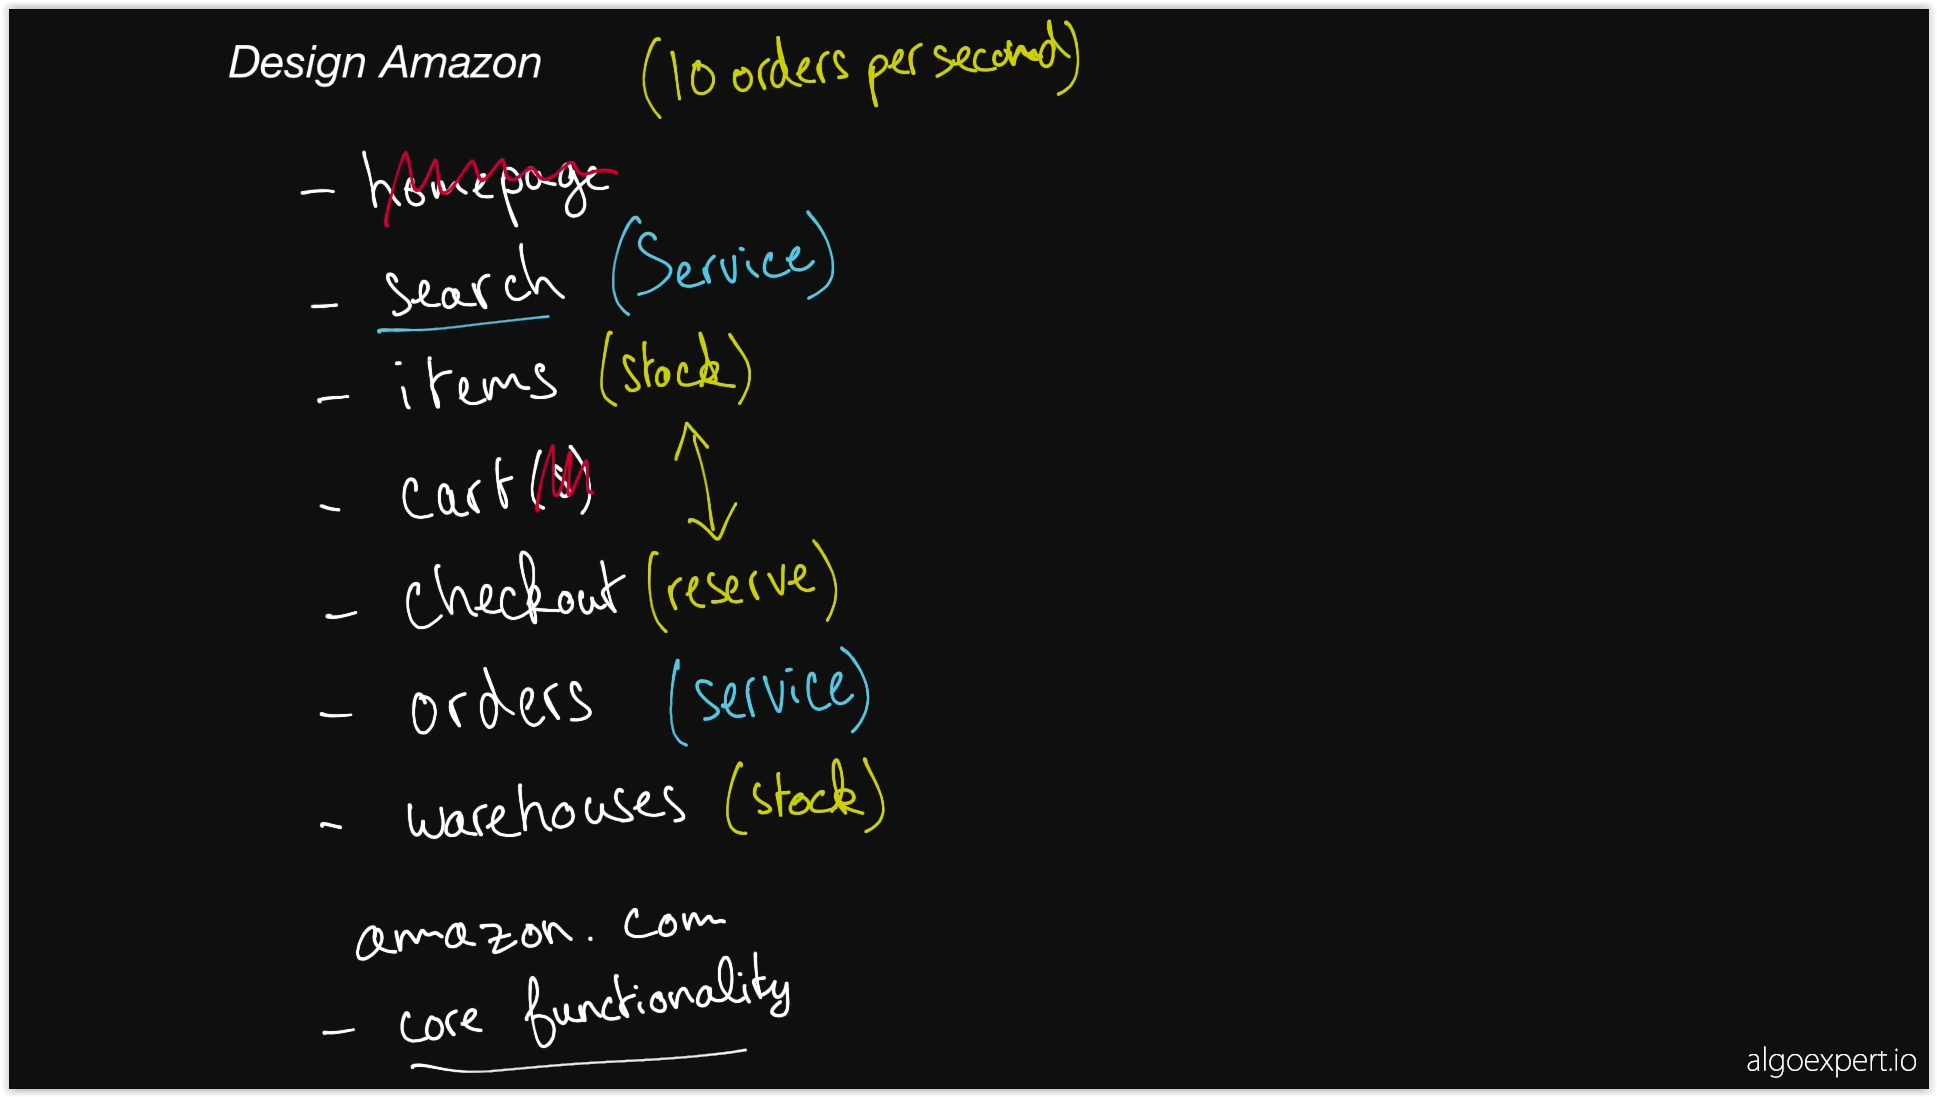 Design Amazon (10 orders per second)
- homepage
- search (Service)
- items (stock)
- cart(s)
- checkout (reserve)
- orders (service)
- warehouses (stock)
amazon.com
- core functionality
algoexpert.io